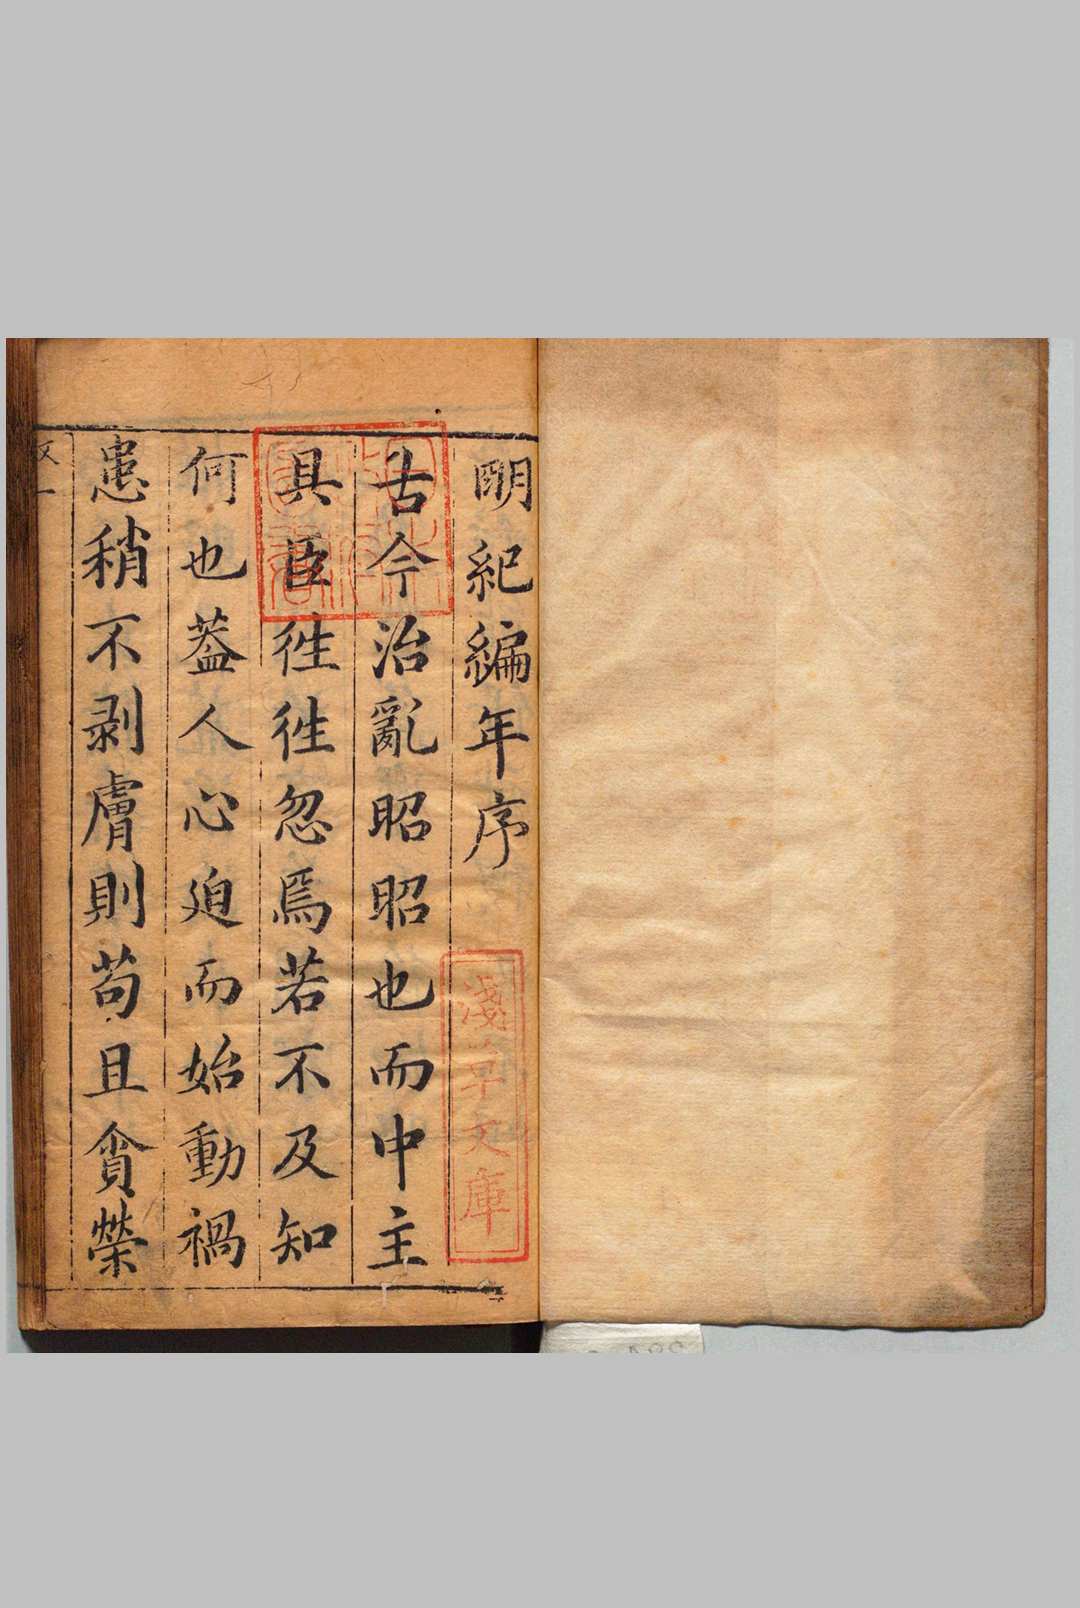 明紀編年序
古今治亂昭昭也而中主
具臣徃徃忽焉若不及知
何也葢人心迫而始動禍
患稍不剥膚則苟且貪榮
淺草文庫